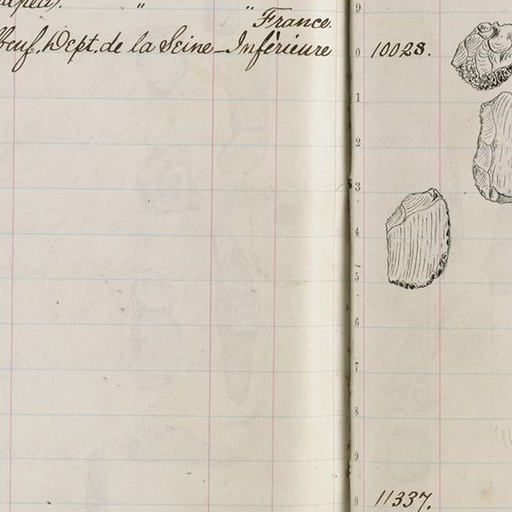 " "
France.
Dept. de la Seine-Inférieure 10028.
9
0
1
2
3
4
5
6
7
8
9
0
11337.